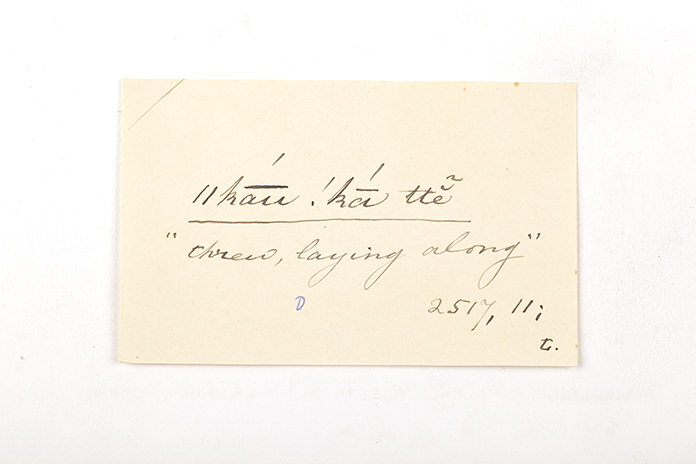 ǁkā́ụ ǃkā́ ttẽ̆
"threw, laying along"
D
2517, 11;
t.